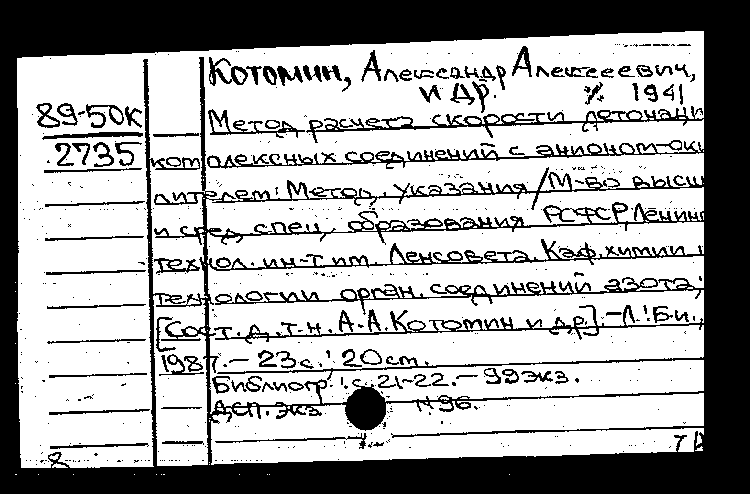 Котомин, Александр Алексеевич,
и др. 1941
89-50к
2735
Метод расчета скорости детонаци
комплексных соединений с анионом-оки
лителем: Метод. указания / М-во высш
и сред. спец. образования РСФСР, Ленинг
технол. ин-т им. Ленсовета. Каф. химии и
технологии орган. соединений азота;
[Сост. д.т.н. А.А. Котомин и др.]. - Л.: Б.и.,
1987. - 23 с.; 20 см.
Библиогр.: с. 21-22. - 99 экз.
ДСП. экз N 96.